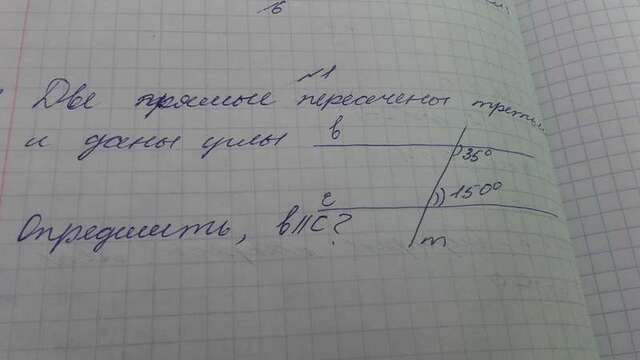 16
№1
Две прямые пересечены третьей
и даны углы в 35°
с 150°
Определить, в||С?
m